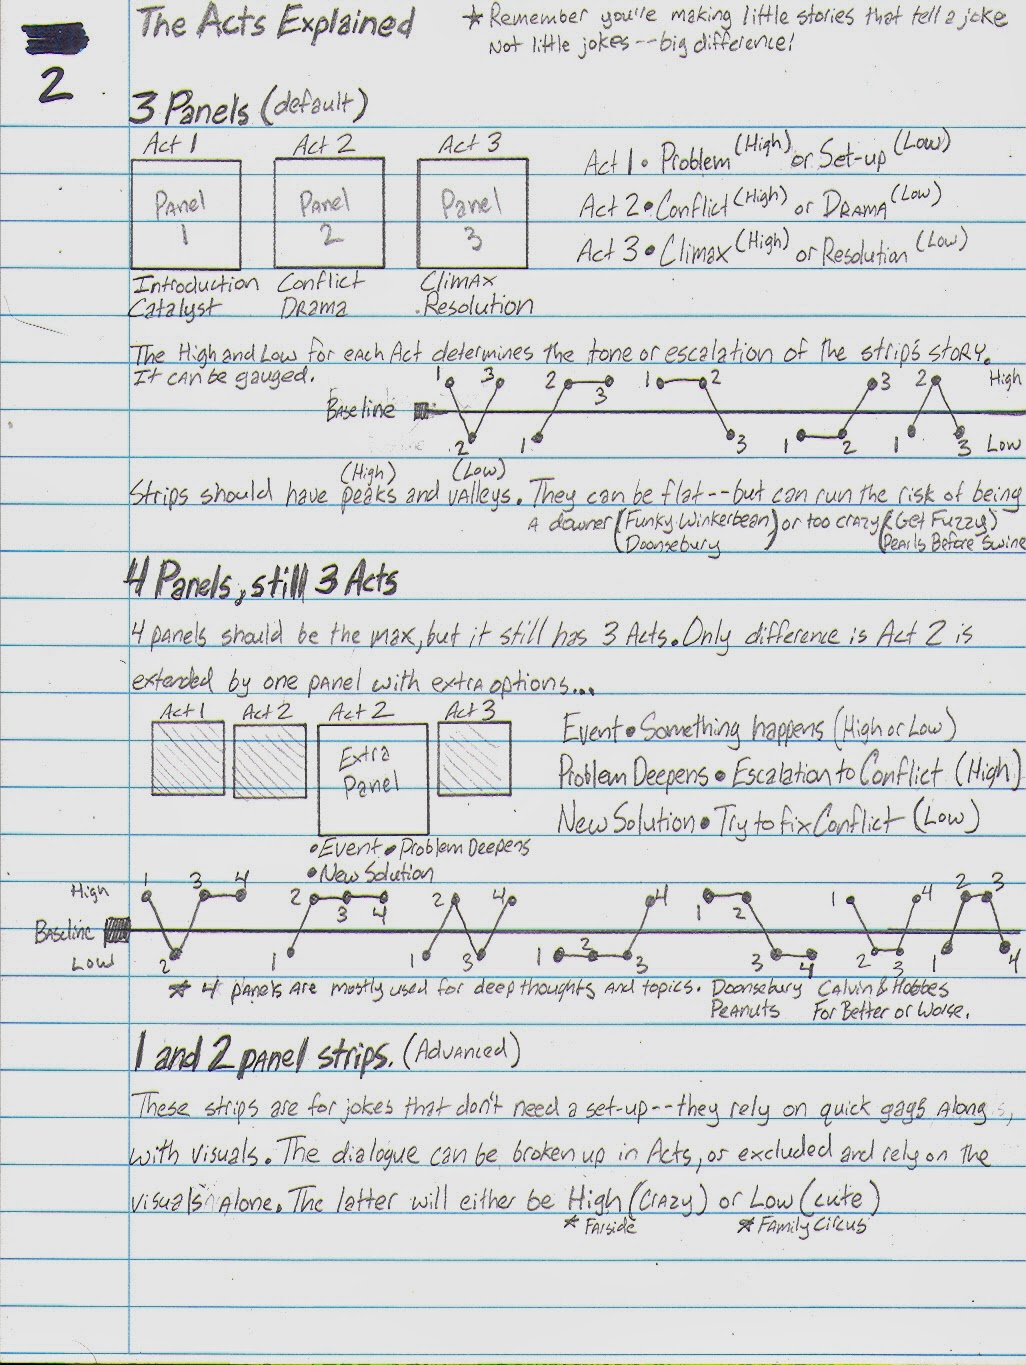 The Acts Explained
* Remember you're making little stories that tell a joke
Not little jokes--big difference!
2
3 Panels (default)
Act 1 Act 2 Act 3
Panel 1 Panel 2 Panel 3
Introduction Conflict Climax
Catalyst Drama Resolution
Act 1 • Problem (High) or Set-up (Low)
Act 2 • Conflict (High) or Drama (Low)
Act 3 • Climax (High) or Resolution (Low)
The High and Low for each Act determines the tone or escalation of the strip's story.
It can be gauged.
1 3 2 3 1 2 3 2 High
Baseline
2 1 3 1 2 1 3 Low
(High) (Low)
Strips should have peaks and valleys. They can be flat--but can run the risk of being
a downer (Funky Winkerbean) or too crazy (Get Fuzzy)
(Doonsebury) (Pearls Before Swine
4 Panels, still 3 Acts
4 panels should be the max, but it still has 3 Acts. Only difference is Act 2 is
extended by one panel with extra options...
Act 1 Act 2 Act 2 Act 3
Extra
Panel
• Event • Problem Deepens
• New Solution
Event • Something happens (High or Low)
Problem Deepens • Escalation to Conflict (High)
New Solution • Try to fix Conflict (Low)
High 1 3 4 2 3 4 2 4 4 1 2 1 4 2 3
Baseline
Low 2 1 1 3 1 2 3 3 4 2 3 1 4
* 4 panels are mostly used for deep thoughts and topics. Doonsebury Calvin & Hobbes
Peanuts For Better or Worse.
1 and 2 panel strips. (Advanced)
These strips are for jokes that don't need a set-up--they rely on quick gags along
with visuals. The dialogue can be broken up in Acts, or excluded and rely on the
visuals alone. The latter will either be High (Crazy) or Low (cute)
* Farside * Family Circus